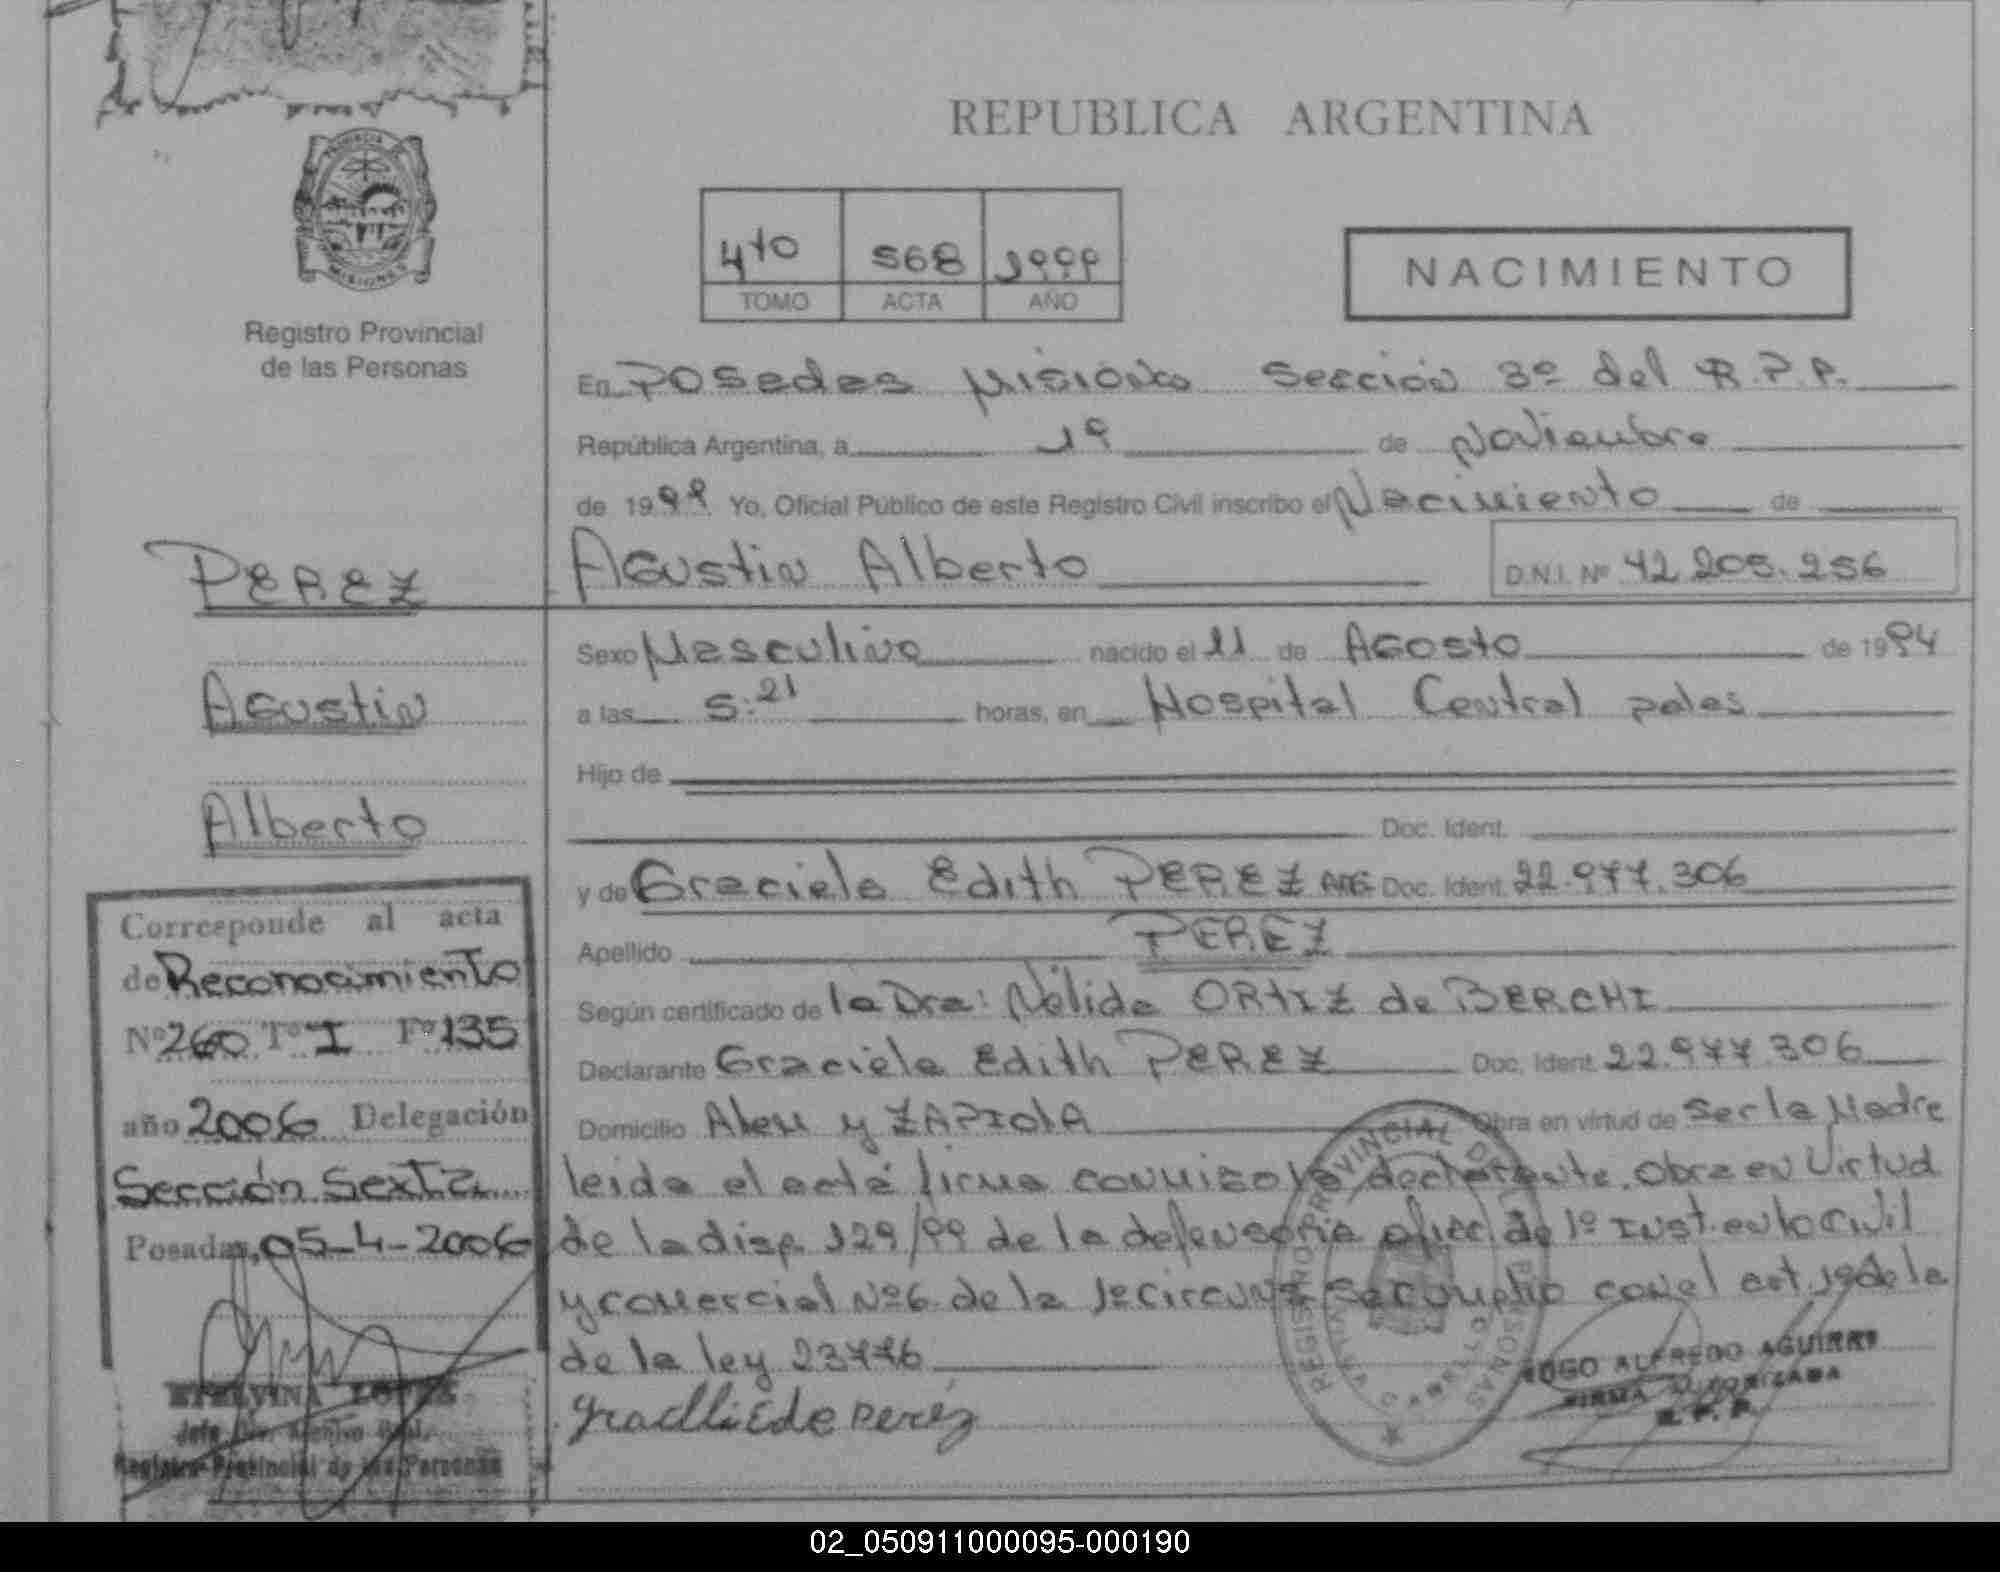 REPUBLICA ARGENTINA
PROVINCIA
MISIONES
Registro Provincial
de las Personas
4to 568 1999
TOMO ACTA AÑO
NACIMIENTO
En Posadas Misiones Sección 3º del R.P.P.
República Argentina, a 19 de Noviembre
de 1999 Yo, Oficial Público de este Registro Civil inscribo el Nacimiento de
Agustin Alberto
D.N.I. Nº 42.205.256
Sexo Masculino nacido el 11 de Agosto de 1994
a las 5:21 horas, en Hospital Central pdas
Hijo de
Doc. Ident.
y de Graciela Edith PEREZ ARG Doc. Ident. 22.977.306
Apellido PEREZ
Según certificado de la Dra: Nélida ORTIZ de BERCHI
Declarante Graciela Edith PEREZ Doc. Ident. 22.977.306
Domicilio y ZAPIOLA Obra en virtud de Ser la Madre
leida el acta firma conmigo la declarante. Obra en Virtud
de la disp. 129/99 de la defensoria ofic. de 1º Inst. en lo Civil
y comercial Nº6 de la 1º circuns. Se cumplio con el art. de la
de la ley 23776
PEREZ
Agustin
Alberto
Corresponde al acta
de Reconocimiento
Nº 260 Tº I Fº 135
año 2006 Delegación
Sección Sexta
Posadas, 05-4-2006
ETELVINA LOPEZ
Registro Provincial de las Personas
REGISTRO PROVINCIAL DE LAS PERSONAS
HUGO ALFREDO AGUIRRE
FIRMA AUTORIZADA
R.P.P.
02_050911000095-000190